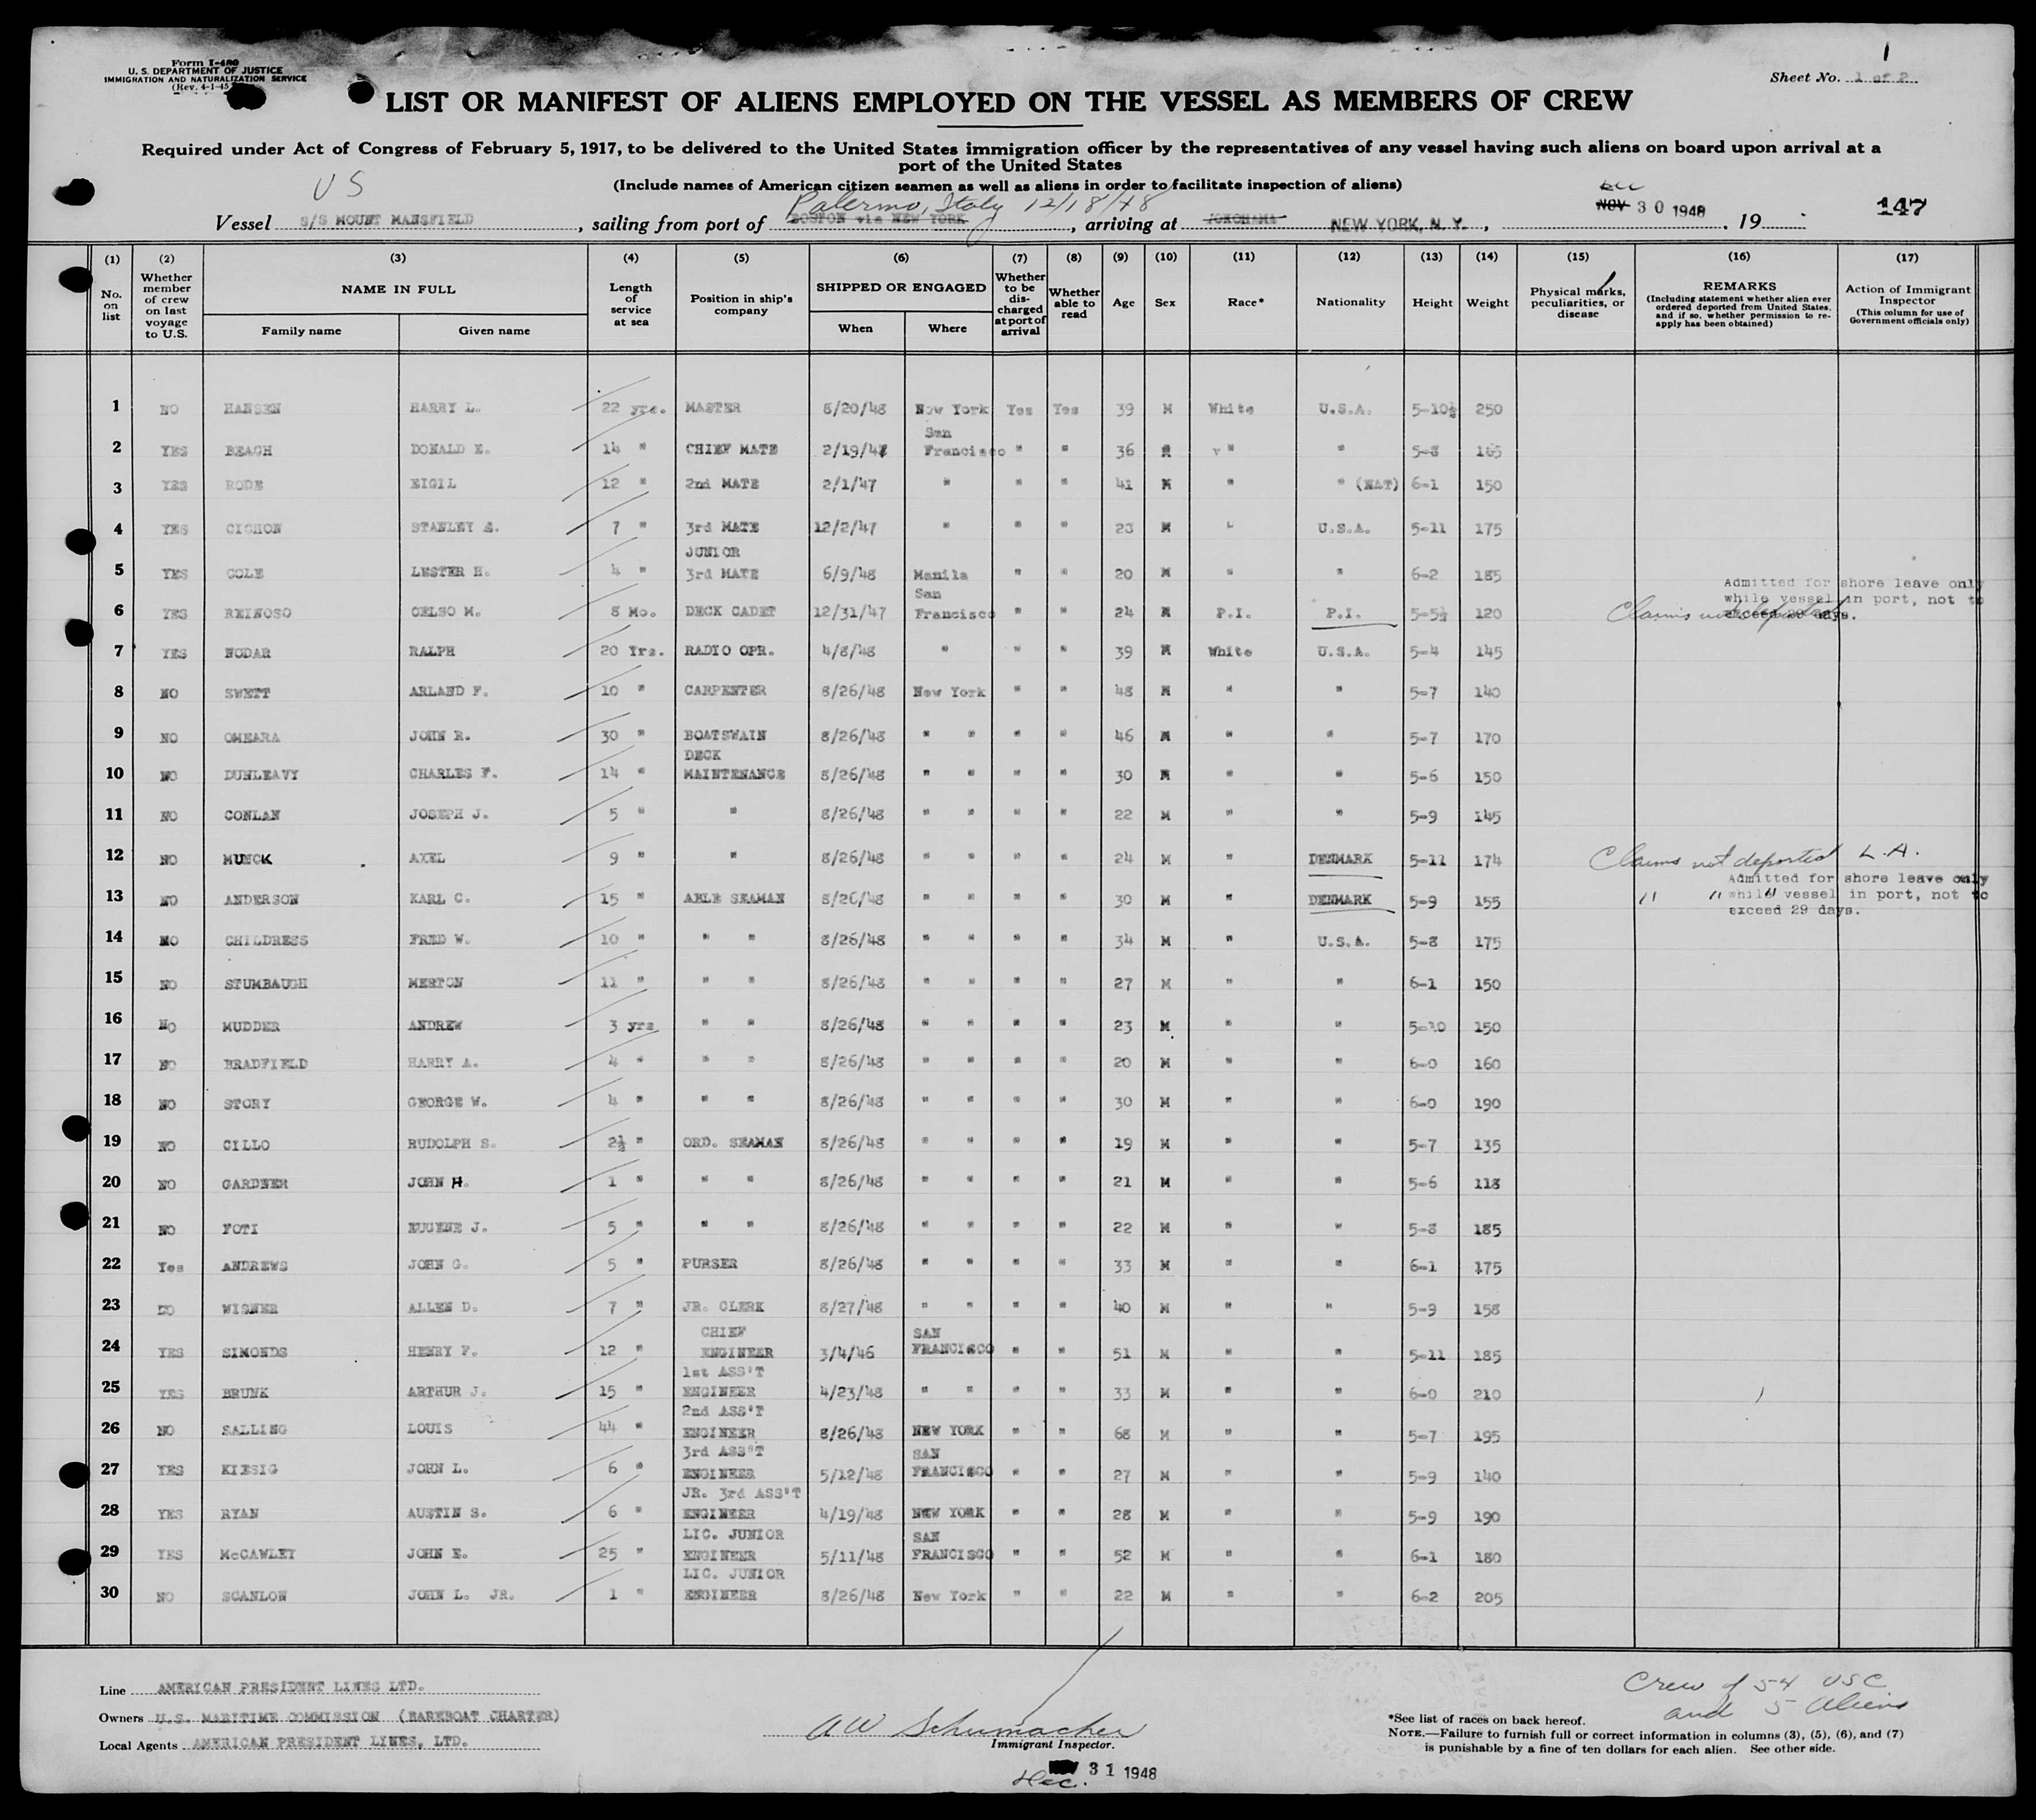 Form I-480
U. S. DEPARTMENT OF JUSTICE
IMMIGRATION AND NATURALIZATION SERVICE
(Rev. 4-1-45)
1
Sheet No. 1 of 2
LIST OR MANIFEST OF ALIENS EMPLOYED ON THE VESSEL AS MEMBERS OF CREW
Required under Act of Congress of February 5, 1917, to be delivered to the United States immigration officer by the representatives of any vessel having such aliens on board upon arrival at a
port of the United States
(Include names of American citizen seamen as well as aliens in order to facilitate inspection of aliens)
US
Palermo, Italy 12/18/48
Dec
Vessel S/S MOUNT MANSFIELD, sailing from port of BOSTON via NEW YORK, arriving at YOKOHAMA NEW YORK, N. Y., NOV 30 1948, 19
147
(1) (2) (3) (4) (5) (6) (7) (8) (9) (10) (11) (12) (13) (14) (15) (16) (17)
No. on list
Whether member of crew on last voyage to U.S.
NAME IN FULL
Family name Given name
Length of service at sea
Position in ship's company
SHIPPED OR ENGAGED
When Where
Whether to be discharged at port of arrival
Whether able to read
Age Sex Race* Nationality Height Weight
Physical marks, peculiarities, or disease
REMARKS
(Including statement whether alien ever ordered deported from United States, and if so, whether permission to re-apply has been obtained)
Action of Immigrant Inspector
(This column for use of Government officials only)
1 NO HANSEN HARRY L. 22 yrs. MASTER 8/20/48 New York Yes Yes 39 M White U.S.A. 5-10½ 250
2 YES BEACH DONALD E. 14 " CHIEF MATE 2/19/48 San Francisco " " 36 M " " 5-8 165
3 YES RODE EIGIL 12 " 2nd MATE 2/1/47 " " " 41 M " " (NAT) 6-1 150
4 YES CICHON STANLEY 7 " 3rd MATE 12/2/47 " " " 23 M " U.S.A. 5-11 175
5 YES COLE LESTER H. 4 " JUNIOR 3rd MATE 6/9/48 Manila " " 20 M " " 6-2 185
6 YES REINOSO CELSO M. 8 Mo. DECK CADET 12/31/47 San Francisco " " 24 M P.I. P.I. 5-5½ 120 Claims not deported Admitted for shore leave only while vessel in port, not to exceed 29 days.
7 YES NODAR RALPH 20 Yrs. RADIO OPR. 4/8/48 " " " 39 M White U.S.A. 5-4 145
8 NO SWETT ARLAND F. 10 " CARPENTER 8/26/48 New York " " 48 M " " 5-7 140
9 NO OMEARA JOHN R. 30 " BOATSWAIN 8/26/48 " " " " 46 M " " 5-7 170
10 NO DUNLEAVY CHARLES F. 14 " DECK MAINTENANCE 8/26/48 " " " " 30 M " " 5-6 150
11 NO CONLAN JOSEPH J. 5 " " 8/26/48 " " " " 22 M " " 5-9 145
12 NO MUNCK AXEL 9 " " 8/26/48 " " " " 24 M " DENMARK 5-11 174 Claims not deported L.A.
13 NO ANDERSON KARL C. 15 " ABLE SEAMAN 8/26/48 " " " " 30 M " DENMARK 5-9 155 " " Admitted for shore leave only while vessel in port, not to exceed 29 days.
14 NO CHILDRESS FRED W. 10 " " " 8/26/48 " " " " 34 M " U.S.A. 5-8 175
15 NO STUMBAUGH MERTON 11 " " " 8/26/48 " " " " 27 M " " 6-1 150
16 NO MUDDER ANDREW 3 yrs " " 8/26/48 " " " " 23 M " " 5-10 150
17 NO BRADFIELD HARRY A. 4 " " " 8/26/48 " " " " 20 M " " 6-0 160
18 NO STORY GEORGE W. 4 " " " 8/26/48 " " " " 30 M " " 6-0 190
19 NO CILLO RUDOLPH S. 2½ " ORD. SEAMAN 8/26/48 " " " " 19 M " " 5-7 135
20 NO GARDNER JOHN H. 1 " " " 8/26/48 " " " " 21 M " " 5-6 118
21 NO FOTI EUGENE J. 5 " " " 8/26/48 " " " " 22 M " " 5-8 185
22 Yes ANDREWS JOHN G. 5 " PURSER 8/26/48 " " " " 33 M " " 6-1 175
23 DO WISNER ALLEN D. 7 " JR. CLERK 8/27/48 " " " " 40 M " " 5-9 158
24 YES SIMONDS HENRY F. 12 " CHIEF ENGINEER 3/4/46 SAN FRANCISCO " " 51 M " " 5-11 185
25 YES BRUNK ARTHUR J. 15 " 1st ASS'T ENGINEER 4/23/48 " " " " 33 M " " 6-0 210
26 NO SALLING LOUIS 44 " 2nd ASS'T ENGINEER 8/26/48 NEW YORK " " 68 M " " 5-7 195
27 YES KIESIG JOHN L. 6 " 3rd ASS'T ENGINEER 5/12/48 SAN FRANCISCO " " 27 M " " 5-9 140
28 YES RYAN AUSTIN S. 6 " JR. 3rd ASS'T ENGINEER 4/19/48 NEW YORK " " 28 M " " 5-9 190
29 YES McCAWLEY JOHN E. 25 " LIC. JUNIOR ENGINEER 5/11/48 SAN FRANCISCO " " 52 M " " 6-1 180
30 NO SCANLON JOHN L. JR. 1 " LIC. JUNIOR ENGINEER 8/26/48 New York " " 22 M " " 6-2 205
Line AMERICAN PRESIDENT LINES LTD.
Owners U.S. MARITIME COMMISSION (BAREBOAT CHARTER)
Local Agents AMERICAN PRESIDENT LINES, LTD.
AW Schumacher
Immigrant Inspector.
Dec. 31 1948
Crew of 54 USC
and 5 Aliens
*See list of races on back hereof.
NOTE.—Failure to furnish full or correct information in columns (3), (5), (6), and (7)
is punishable by a fine of ten dollars for each alien. See other side.